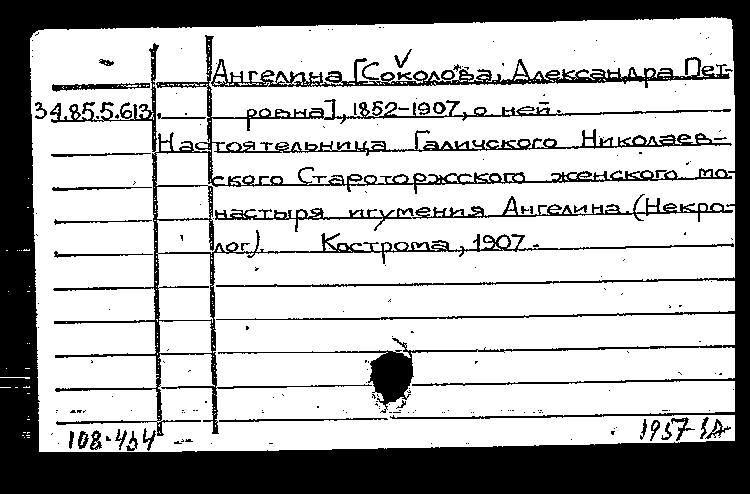 Ангелина [Соколова, Александра Пет-
34.85.5.613. ровна], 1852-1907, о ней.
Настоятельница Галичского Николаев-
ского Староторжсского женского мо-
настыря игумения Ангелина. (Некро-
лог). Кострома, 1907.
108-454
1957